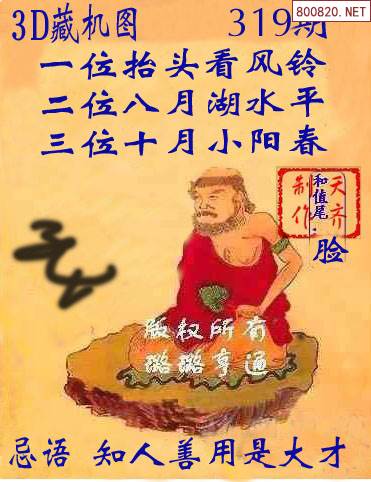 800820.NET
3D藏机图 319期
一位抬头看风铃
二位八月湖水平
三位十月小阳春
天齐
制作
和值尾:
脸
版权所有
璐璐亨通
忌语 知人善用是大才